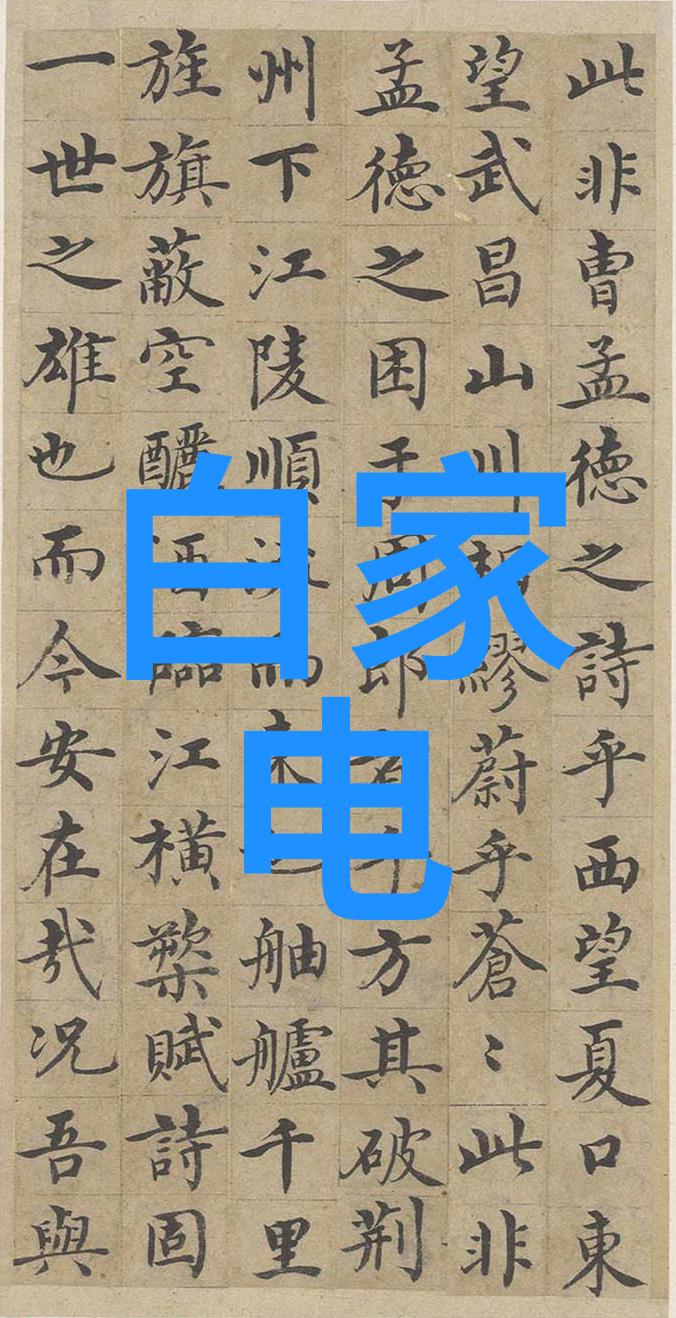 此非曹孟德之詩乎西望夏口東
望武昌山川相繆蔚乎蒼〻此非
孟德之困于周郎者乎方其破荆
州下江陵順流而東也舳艫千里
旌旗蔽空釃酒臨江横槊賦詩固
一世之雄也而今安在哉况吾與
白家
电